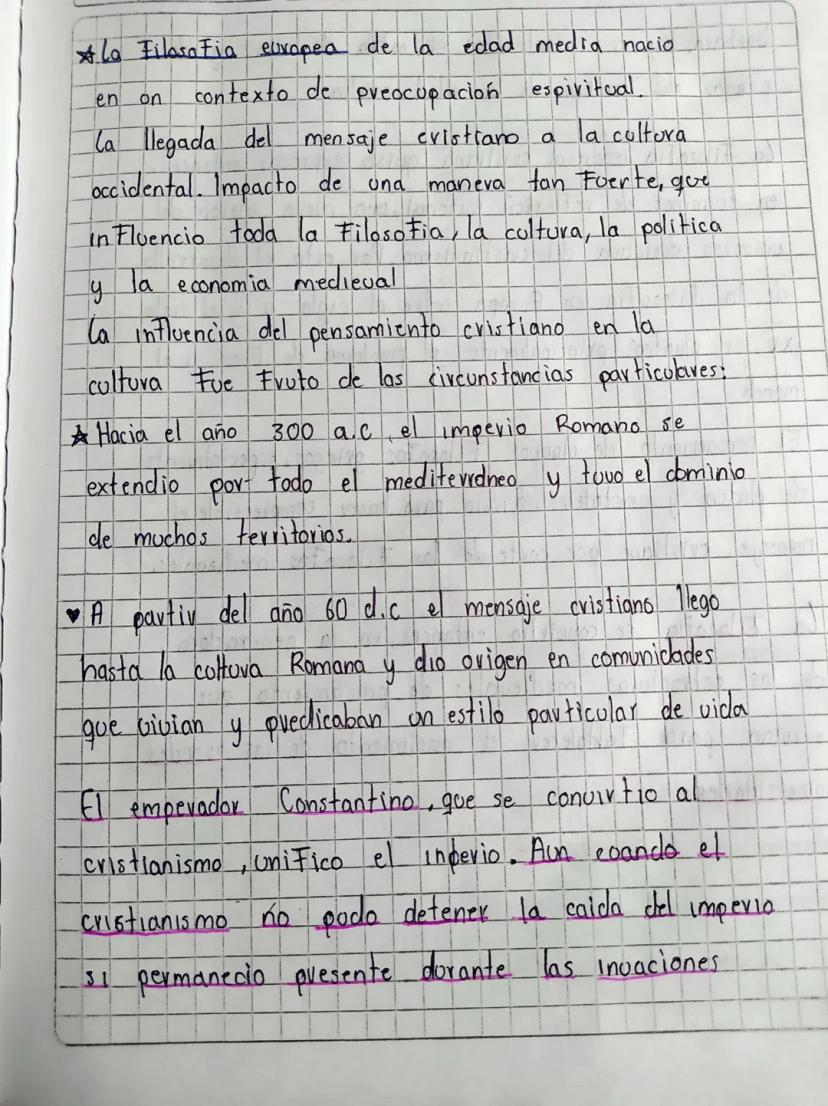 ★ La Filosofia europea de la edad media nacio
en un contexto de preocupación espiritual.
La llegada del mensaje cristiano a la cultura
occidental. Impacto de una manera tan fuerte, que
influencio toda la filosofia, la cultura, la politica
y la economia medieval
La influencia del pensamiento cristiano en la
cultura fue fruto de las circunstancias particulares:
★ Hacia el año 300 a.c, el imperio Romano se
extendio por todo el mediterráneo y tuvo el dominio
de muchos territorios.
♥ A partir del año 60 d.c el mensaje cristiano llego
hasta la cultura Romana y dio origen en comunidades
que vivian y predicaban un estilo particular de vida
El emperador Constantino, que se convirtio al
cristianismo, unifico el inperio. Aun cuando el
cristianismo no pudo detener la caida del imperio
si permanecio presente durante las invaciones